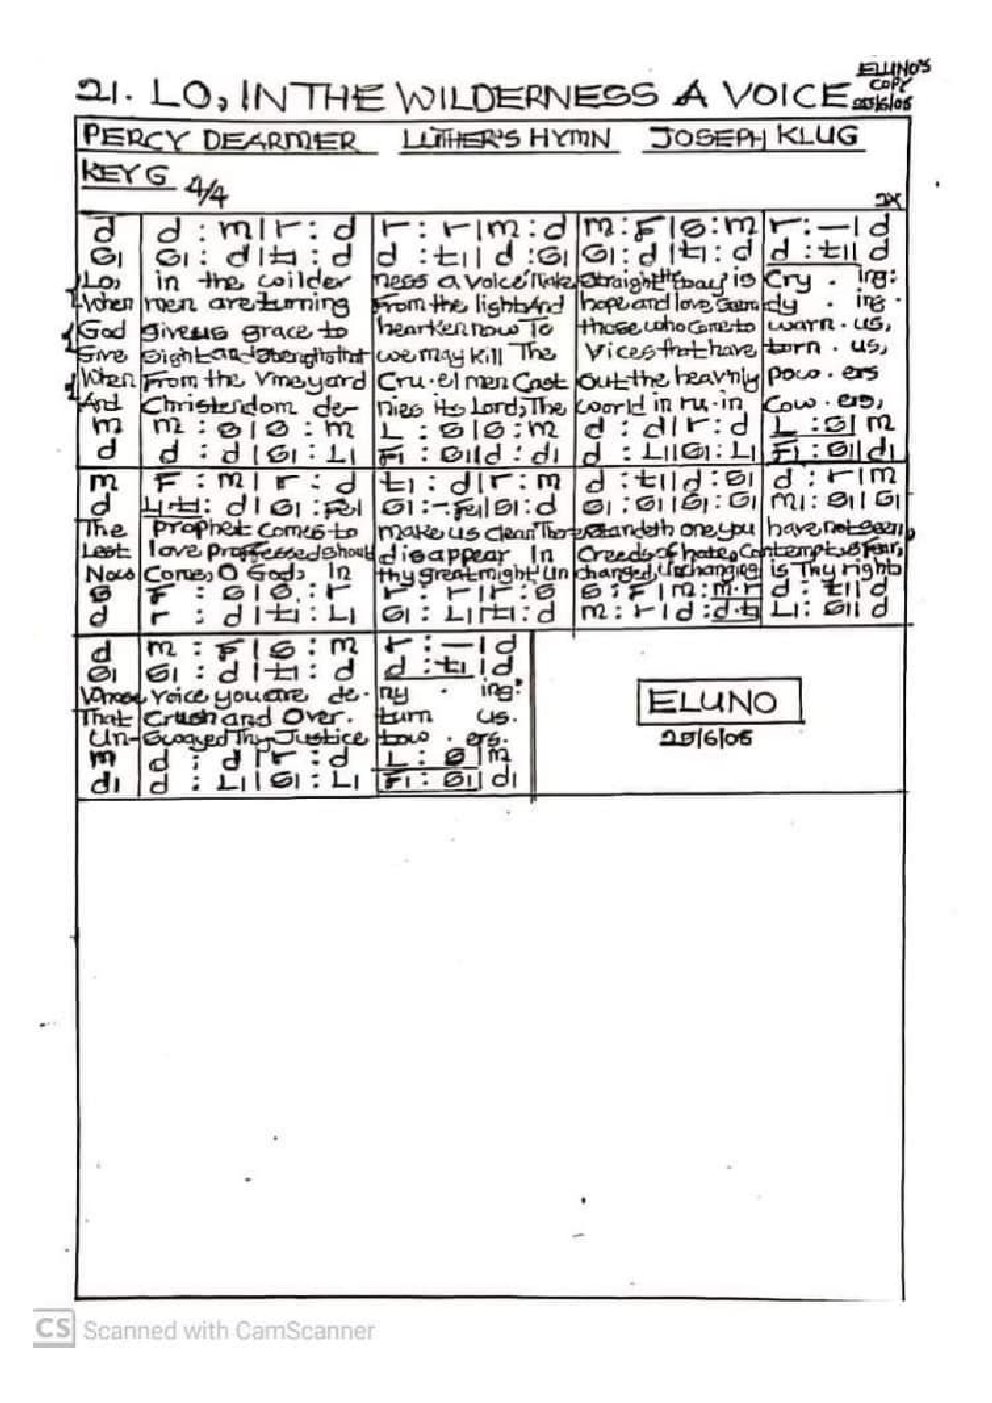 ELUNO'S
COPY
25/6/05
21. LO, IN THE WILDERNESS A VOICE
PERCY DEARMER LUTHER'S HYMN JOSEPH KLUG
KEY G 4/4
2X
d d : m | r : d r : r | m : d m : F | s : m r : – | d
s₁ s₁ : d | t₁ : d d : t₁ | d : s₁ s₁ : d | t₁ : d d : t₁ | d
Lo, in the wilder ness a voice 'Make straight the way' is Cry . ing:
When men are turning From the light And hope and love Seem dy . ing .
God give us grace to hearken now To those who Come to warn . us,
Give Sight and Strength that we may kill The Vices that have torn . us,
When From the Vineyard Cru . el men Cast Out the heav'nly pow . ers
And Christendom de- nies its Lord, The world in ru . in Cow . ers,
m m : s | s : m L : s | s : m d : d | r : d L : s | m
d d : d | s₁ : L₁ F₁ : s₁ | d : d₁ d : L₁ | s₁ : L₁ F₁ : s₁ | d₁
m F : m | r : d t₁ : d | r : m d : t₁ | d : s₁ d : r | m
d L₁ t₁ : d | s₁ : fe₁ s₁ : – fe₁ | s₁ : d s₁ : s₁ | s₁ : s₁ m₁ : s₁ | s₁
The Prophet Comes to make us clean There standeth one you have not seen,
Lest love professed should disappear In Creeds of hate, Contempt, & Fear,
Now Come, O God, In thy great might! Un changed, Unchanging is Thy right
s F : s | s : r r : r | r : s s : F | m : m . r d : t₁ | d
d r : d | t₁ : L₁ s₁ : L₁ | t₁ : d m : r | d : d . t₁ L₁ : s₁ | d
d m : F | s : m r : – | d
s₁ s₁ : d | t₁ : d d : t₁ | d
Whose Voice you are de- ny . ing:
That Crush and Over . turn us.
Un-Swayed Thy Justice tow . ers.
m d : d | r : d L : s | m
d₁ d : L₁ | s₁ : L₁ F₁ : s₁ | d₁
ELUNO
25/6/05
CS Scanned with CamScanner